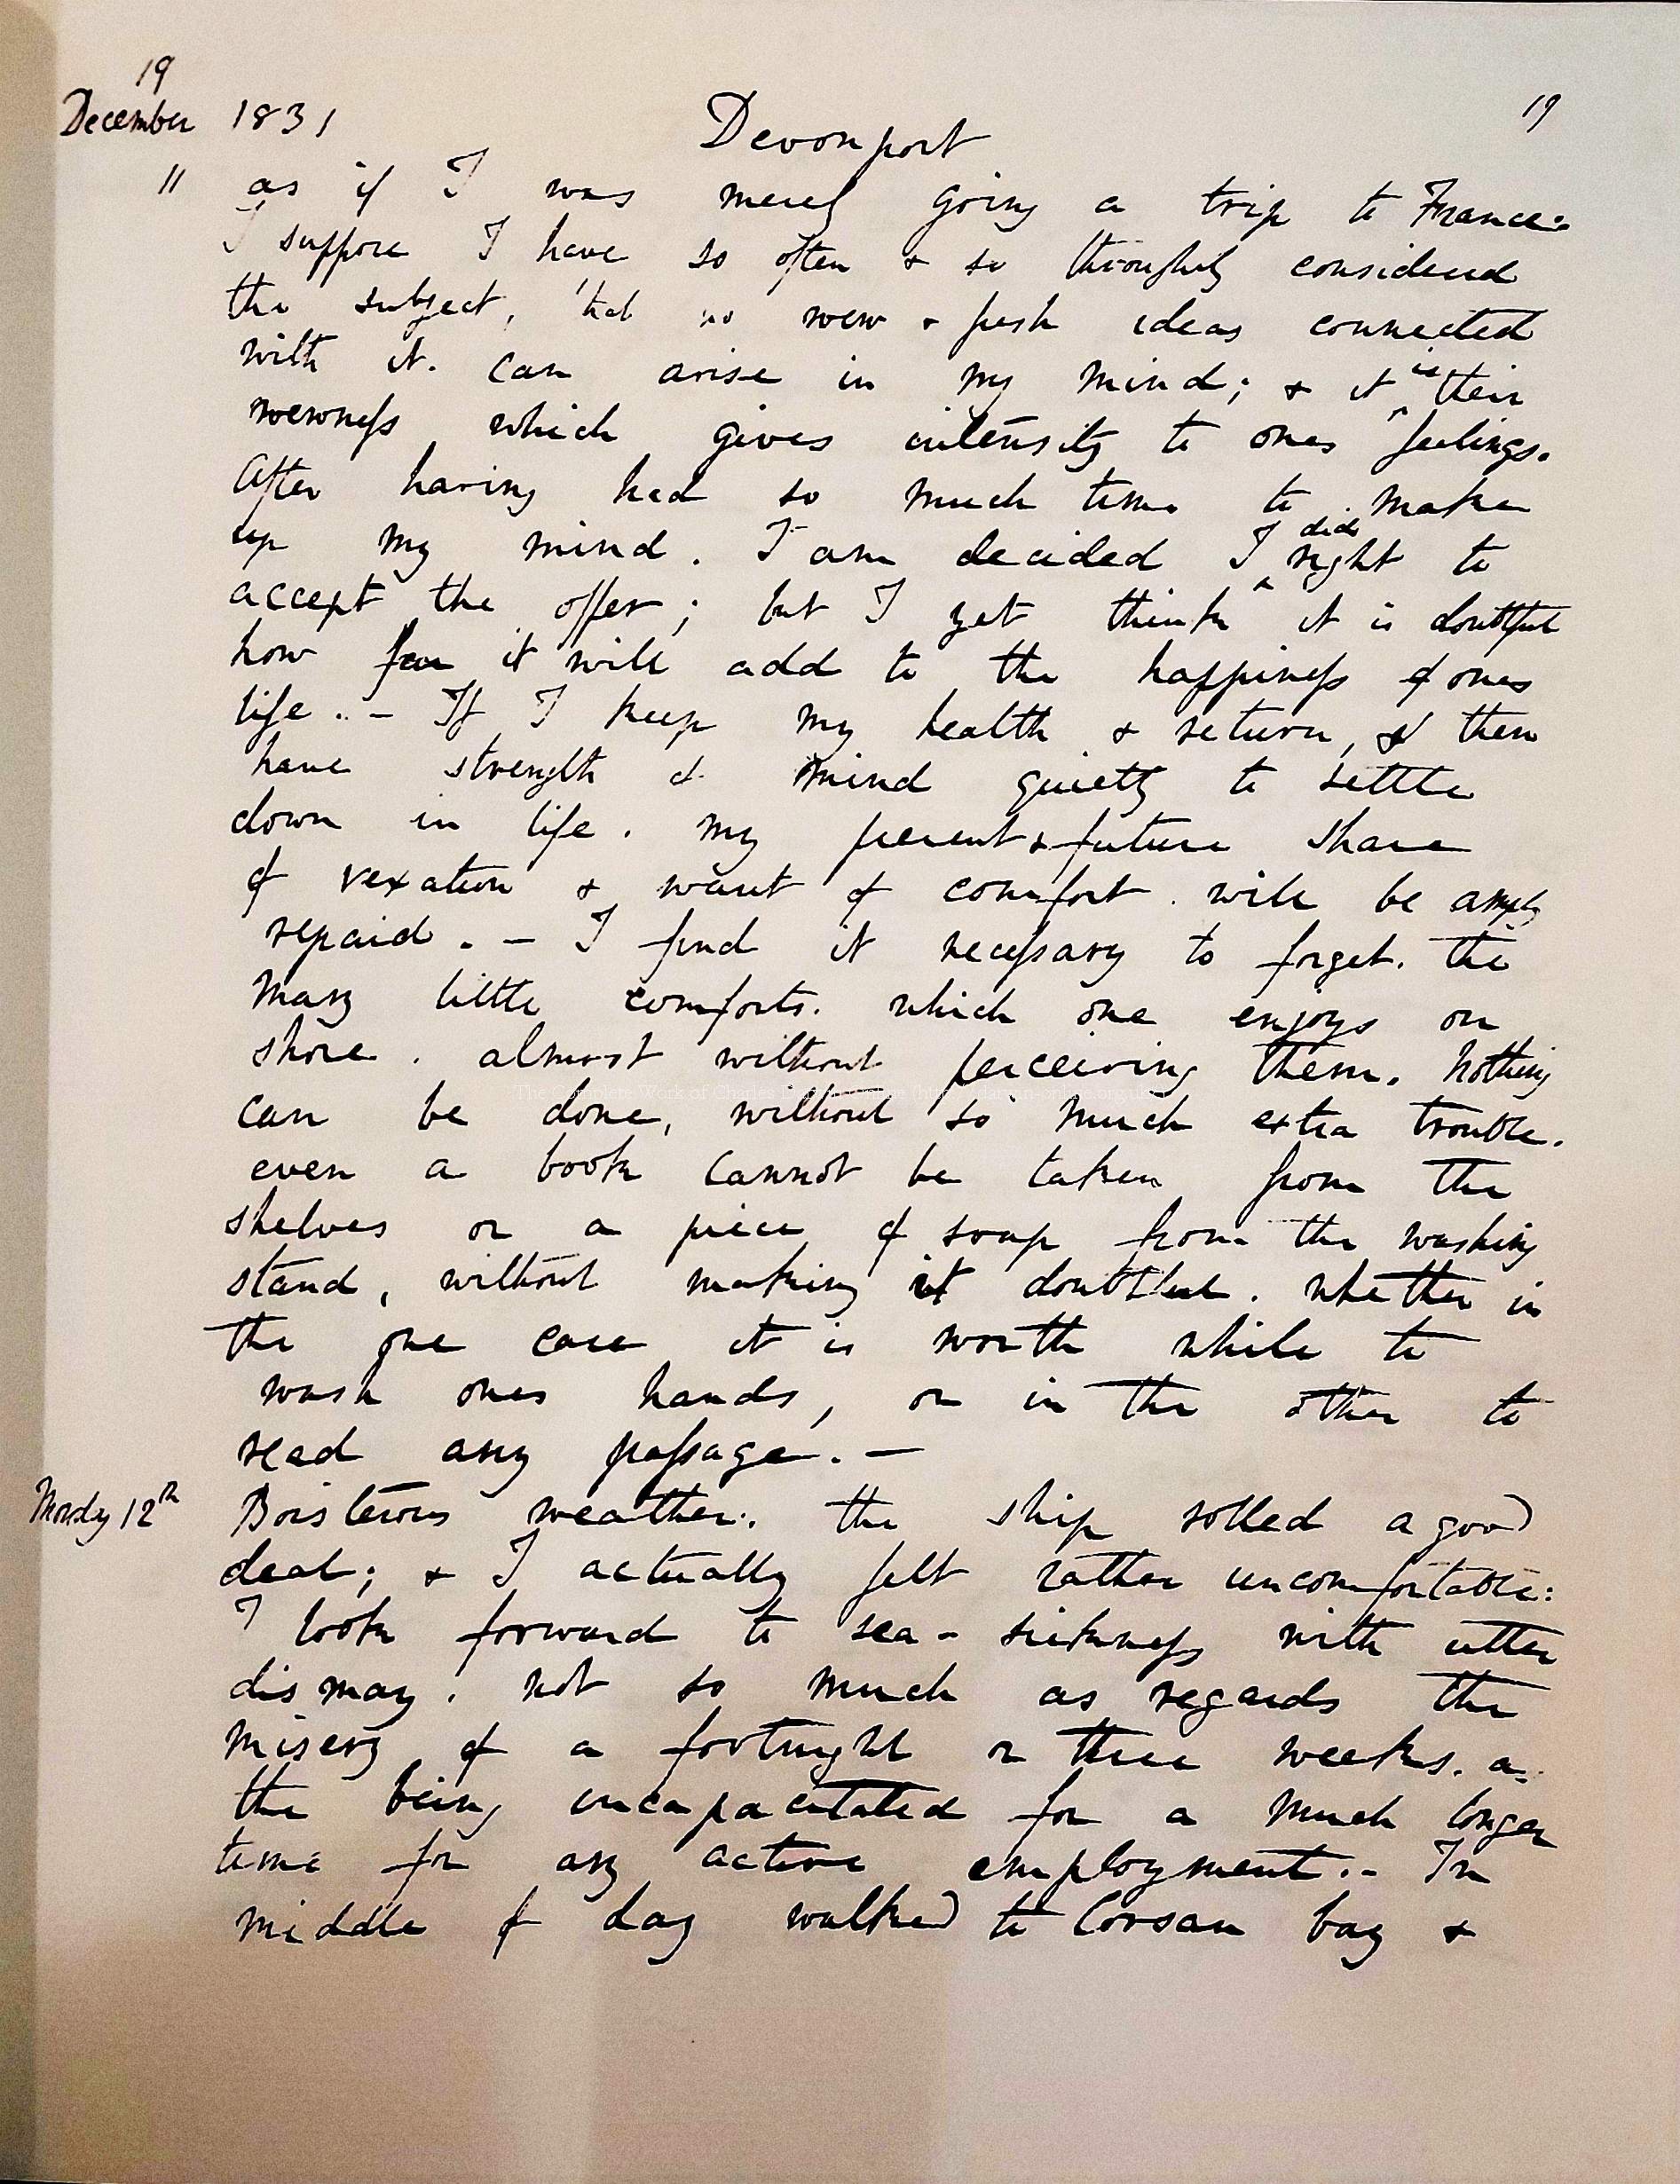 19
December 1831
Devonport
19
" as if I was merely going a trip to France:
I suppose I have so often & so throughily considered
the subject, that no new & fresh ideas connected
with it. can arise in my mind; & it is their
newness which gives intensity to ones feelings.
After having had so much time to make
up my mind. I am decided I did right to
accept the offer; but I yet think it is doubtful
how far it will add to the happiness of ones
life. - If I keep my health & return, & then
have strength of mind quietly to settle
down in life. my present & future share
of vexation & want of comfort. will be amply
repaid. - I find it necessary to forget. the
many little comforts. which one enjoys on
shore. almost without perceiving them. Nothing
can be done, without so much extra trouble.
even a book cannot be taken from the
shelves or a piece of soap from the washing
stand, without making it doubtful. whether in
the one case it is worth while to
wash ones hands, or in the other to
read any passage. -
Monday 12th Boisterous weather. the ship rolled a good
deal; & I actually felt rather uncomfortable:
I look forward to sea-sickness with utter
dismay. not so much as regards the
misery of a fortnight or three weeks. as
the being uncapacitated for a much longer
time for any active employment. - In
middle of day walked to Corsan bay &